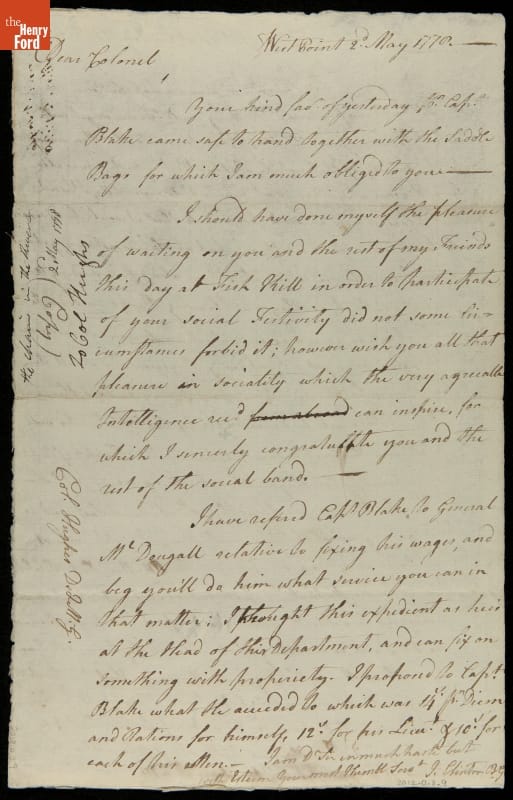 the
Henry
Ford
West Point 2d May 1778.
Dear Colonel,
Your kind favr of yesterday pr Capt
Blake came safe to hand together with the Saddle
Bags for which I am much obliged to you
I should have done myself the pleasure
of waiting on you and the rest of my Friends
this day at Fish Kill in order to participate
of your social Festivity did not some Cir-
cumstances forbid it; however wish you all that
pleasure in sociality which the very agreeable
Intelligence recd from abroad can inspire, for
which I sincerly congratulate you and the
rest of the social band.
I have refired Capt Blake to General
Mc Dougall relative to fixing his wages, and
beg you'll do him what service you can in
that matter; I thought this expedient as he is
at the Head of this Department, and can fix on
something with propriety. I propond to Capt
Blake what he acceded to which was 14s pr Diem
and Rations for himself, 12s for his Lieut & 10s for
each of his Men. I am Dr Sir in much haste but
with Esteem Your most Humble Servt J. Clinton B G
the chain in the
Copy
2 May 1778
To Col Hughs
Col. Hughes D.Q.M.G.
2012.0.3.9